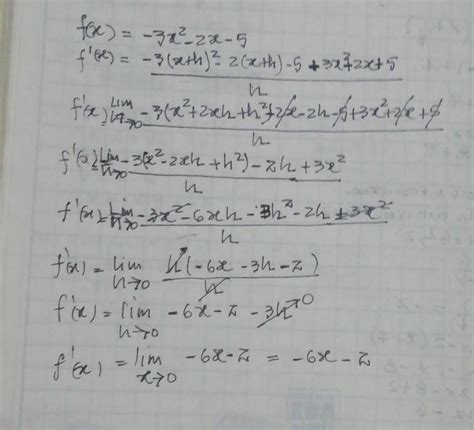 f(x) = -3x² - 2x - 5
f'(x) = -3(x+h)² - 2(x+h) - 5 + 3x² + 2x + 5 / h
f'(x) = lim h→0 -3(x² + 2xh + h²) - 2x - 2h - 5 + 3x² + 2x + 5 / h
f'(x) = lim h→0 -3(x² - 2xh + h²) - 2h + 3x² / h
f'(x) = lim h→0 -3x² - 6xh - 3h² - 2h + 3x² / h
f'(x) = lim h→0 h(-6x - 3h - 2) / h
f'(x) = lim h→0 -6x - 2 - 3h→0
f'(x) = lim x→0 -6x - 2 = -6x - 2